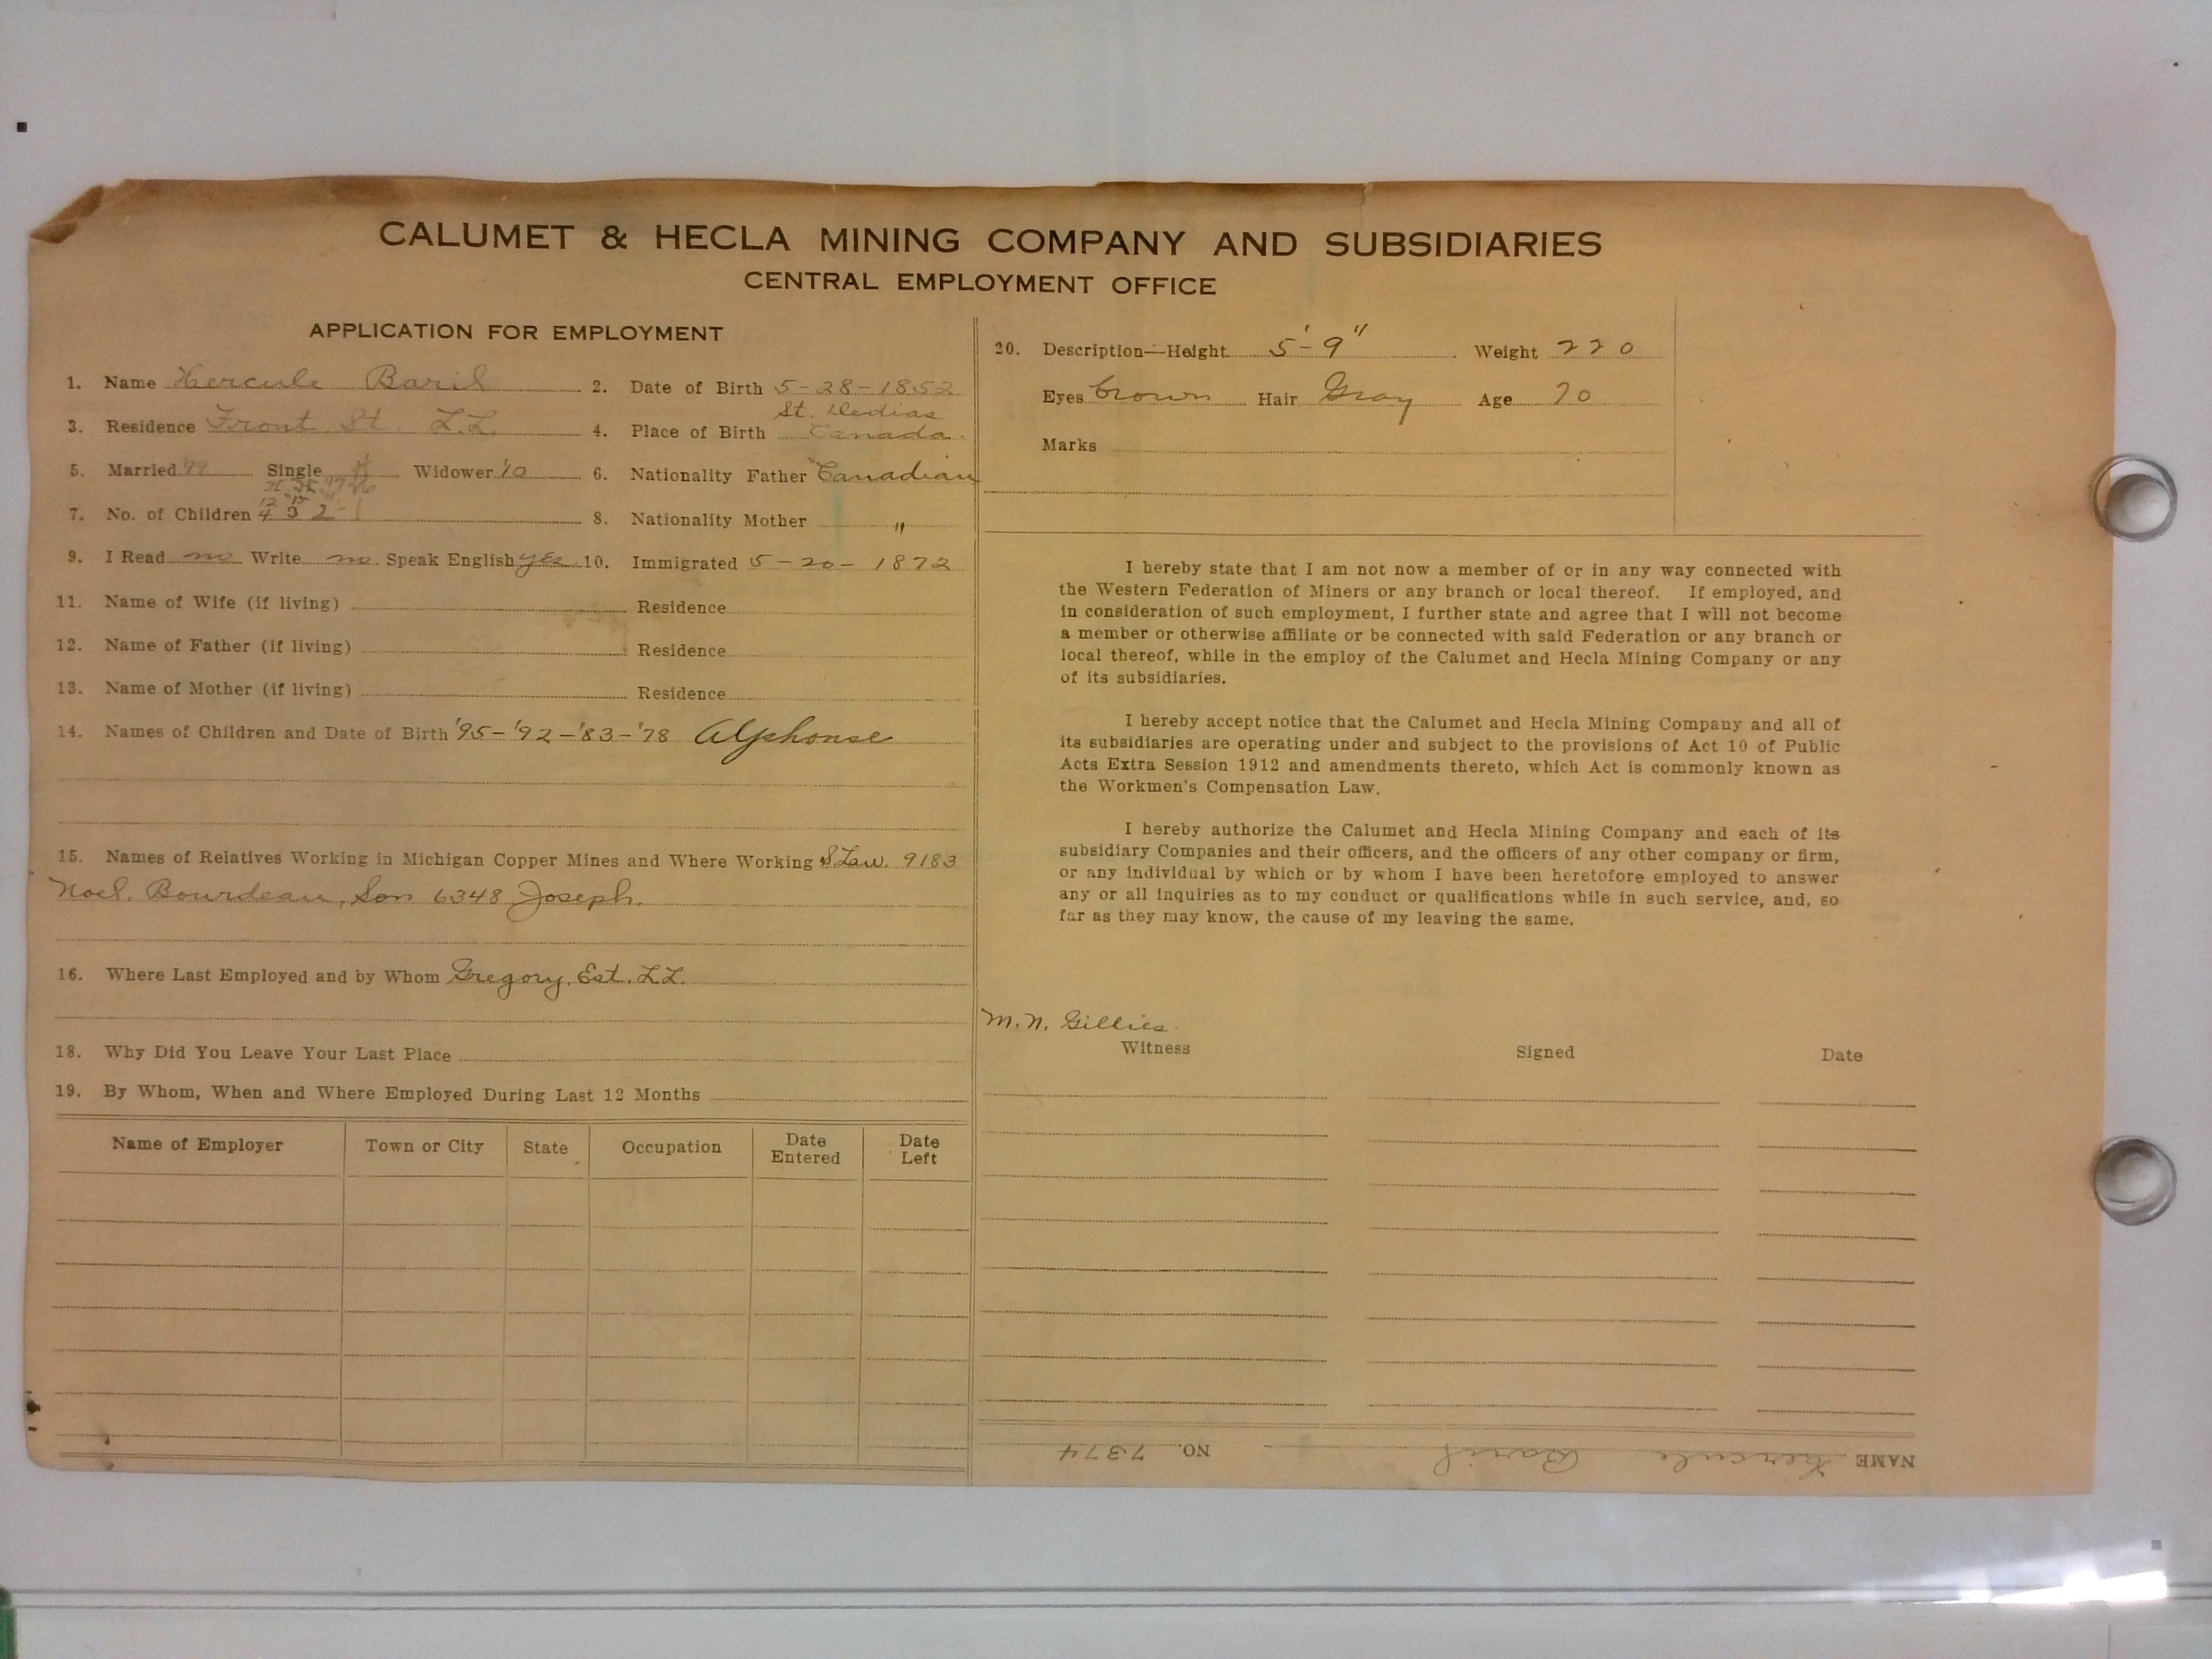 CALUMET & HECLA MINING COMPANY AND SUBSIDIARIES
CENTRAL EMPLOYMENT OFFICE
APPLICATION FOR EMPLOYMENT
1. Name Hercule Baril 2. Date of Birth 5-28-1852
3. Residence Front St. L.L. 4. Place of Birth St. Canada.
5. Married '99 Single Widower '10 6. Nationality Father Canadian
7. No. of Children 4 3 2-1 8. Nationality Mother "
9. I Read no Write no. Speak English yes 10. Immigrated 5-20-1872
11. Name of Wife (if living) Residence
12. Name of Father (if living) Residence
13. Name of Mother (if living) Residence
14. Names of Children and Date of Birth '95-'92-'83-'78 Alphonse
15. Names of Relatives Working in Michigan Copper Mines and Where Working S.Law. 9183
Noel. Bourdeau, Son 6348 Joseph.
16. Where Last Employed and by Whom Gregory. Est. L.L.
18. Why Did You Leave Your Last Place
19. By Whom, When and Where Employed During Last 12 Months
Name of Employer Town or City State Occupation Date Entered Date Left
20. Description—Height 5'-9" Weight 220
Eyes brown Hair Gray Age 70
Marks
I hereby state that I am not now a member of or in any way connected with
the Western Federation of Miners or any branch or local thereof. If employed, and
in consideration of such employment, I further state and agree that I will not become
a member or otherwise affiliate or be connected with said Federation or any branch or
local thereof, while in the employ of the Calumet and Hecla Mining Company or any
of its subsidiaries.
I hereby accept notice that the Calumet and Hecla Mining Company and all of
its subsidiaries are operating under and subject to the provisions of Act 10 of Public
Acts Extra Session 1912 and amendments thereto, which Act is commonly known as
the Workmen's Compensation Law.
I hereby authorize the Calumet and Hecla Mining Company and each of its
subsidiary Companies and their officers, and the officers of any other company or firm,
or any individual by which or by whom I have been heretofore employed to answer
any or all inquiries as to my conduct or qualifications while in such service, and, so
far as they may know, the cause of my leaving the same.
M.N. Gillies.
Witness Signed Date
NAME Hercule Baril NO. 7374